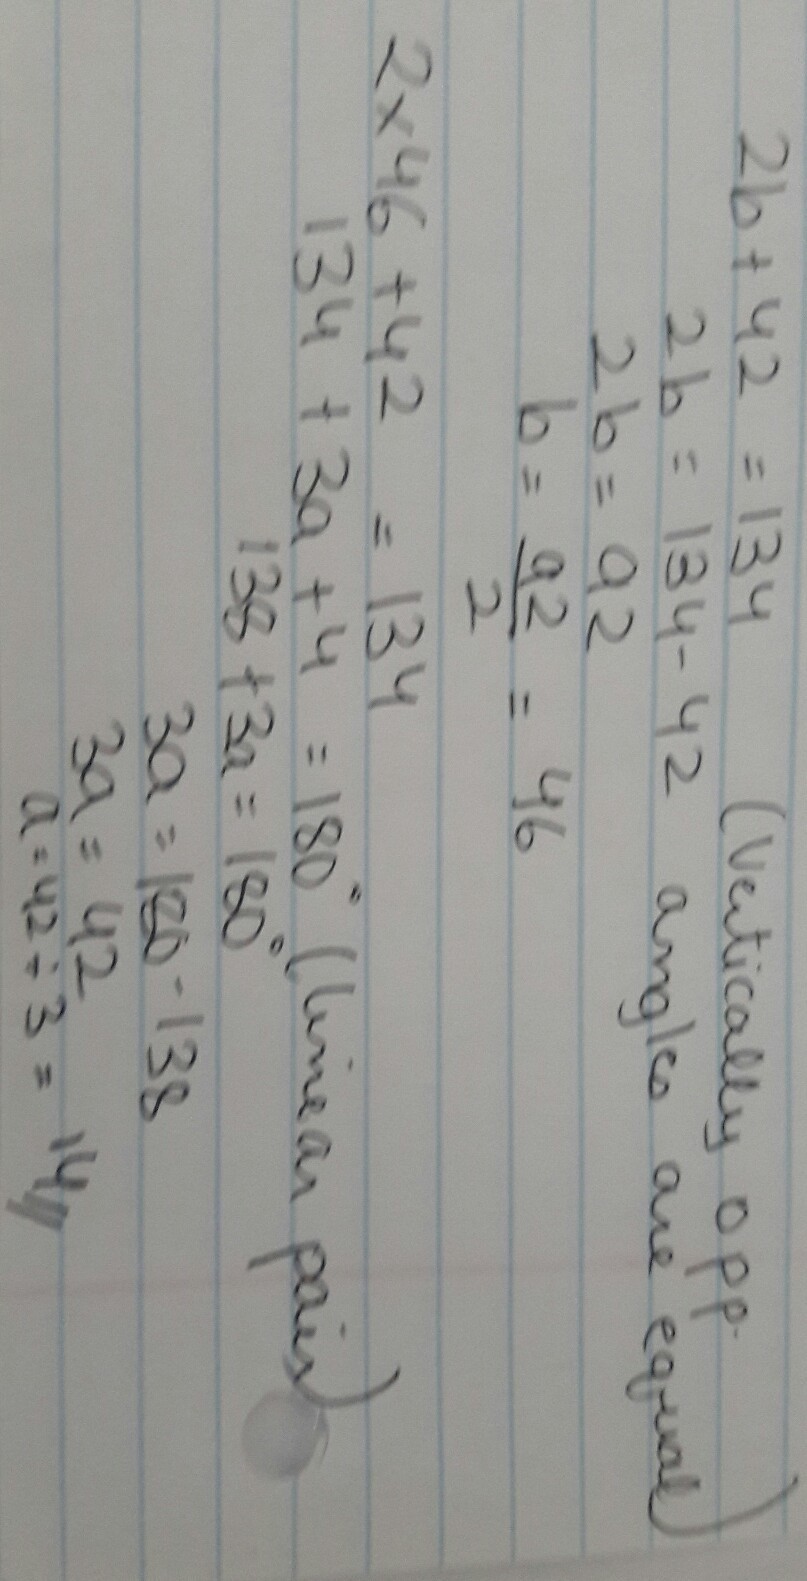 2b + 42 = 134 (Vertically opp.
2b = 134 - 42 angles are equal)
2b = 92
b = 92/2 = 46
2 x 46 + 42 = 134
134 + 3a + 4 = 180° (linear pair)
138 + 3a = 180°
3a = 180 - 138
3a = 42
a = 42 ÷ 3 = 14//